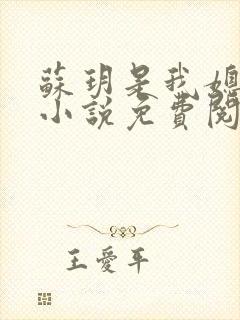 蘇玥是我媳
小說免費閱
王愛平